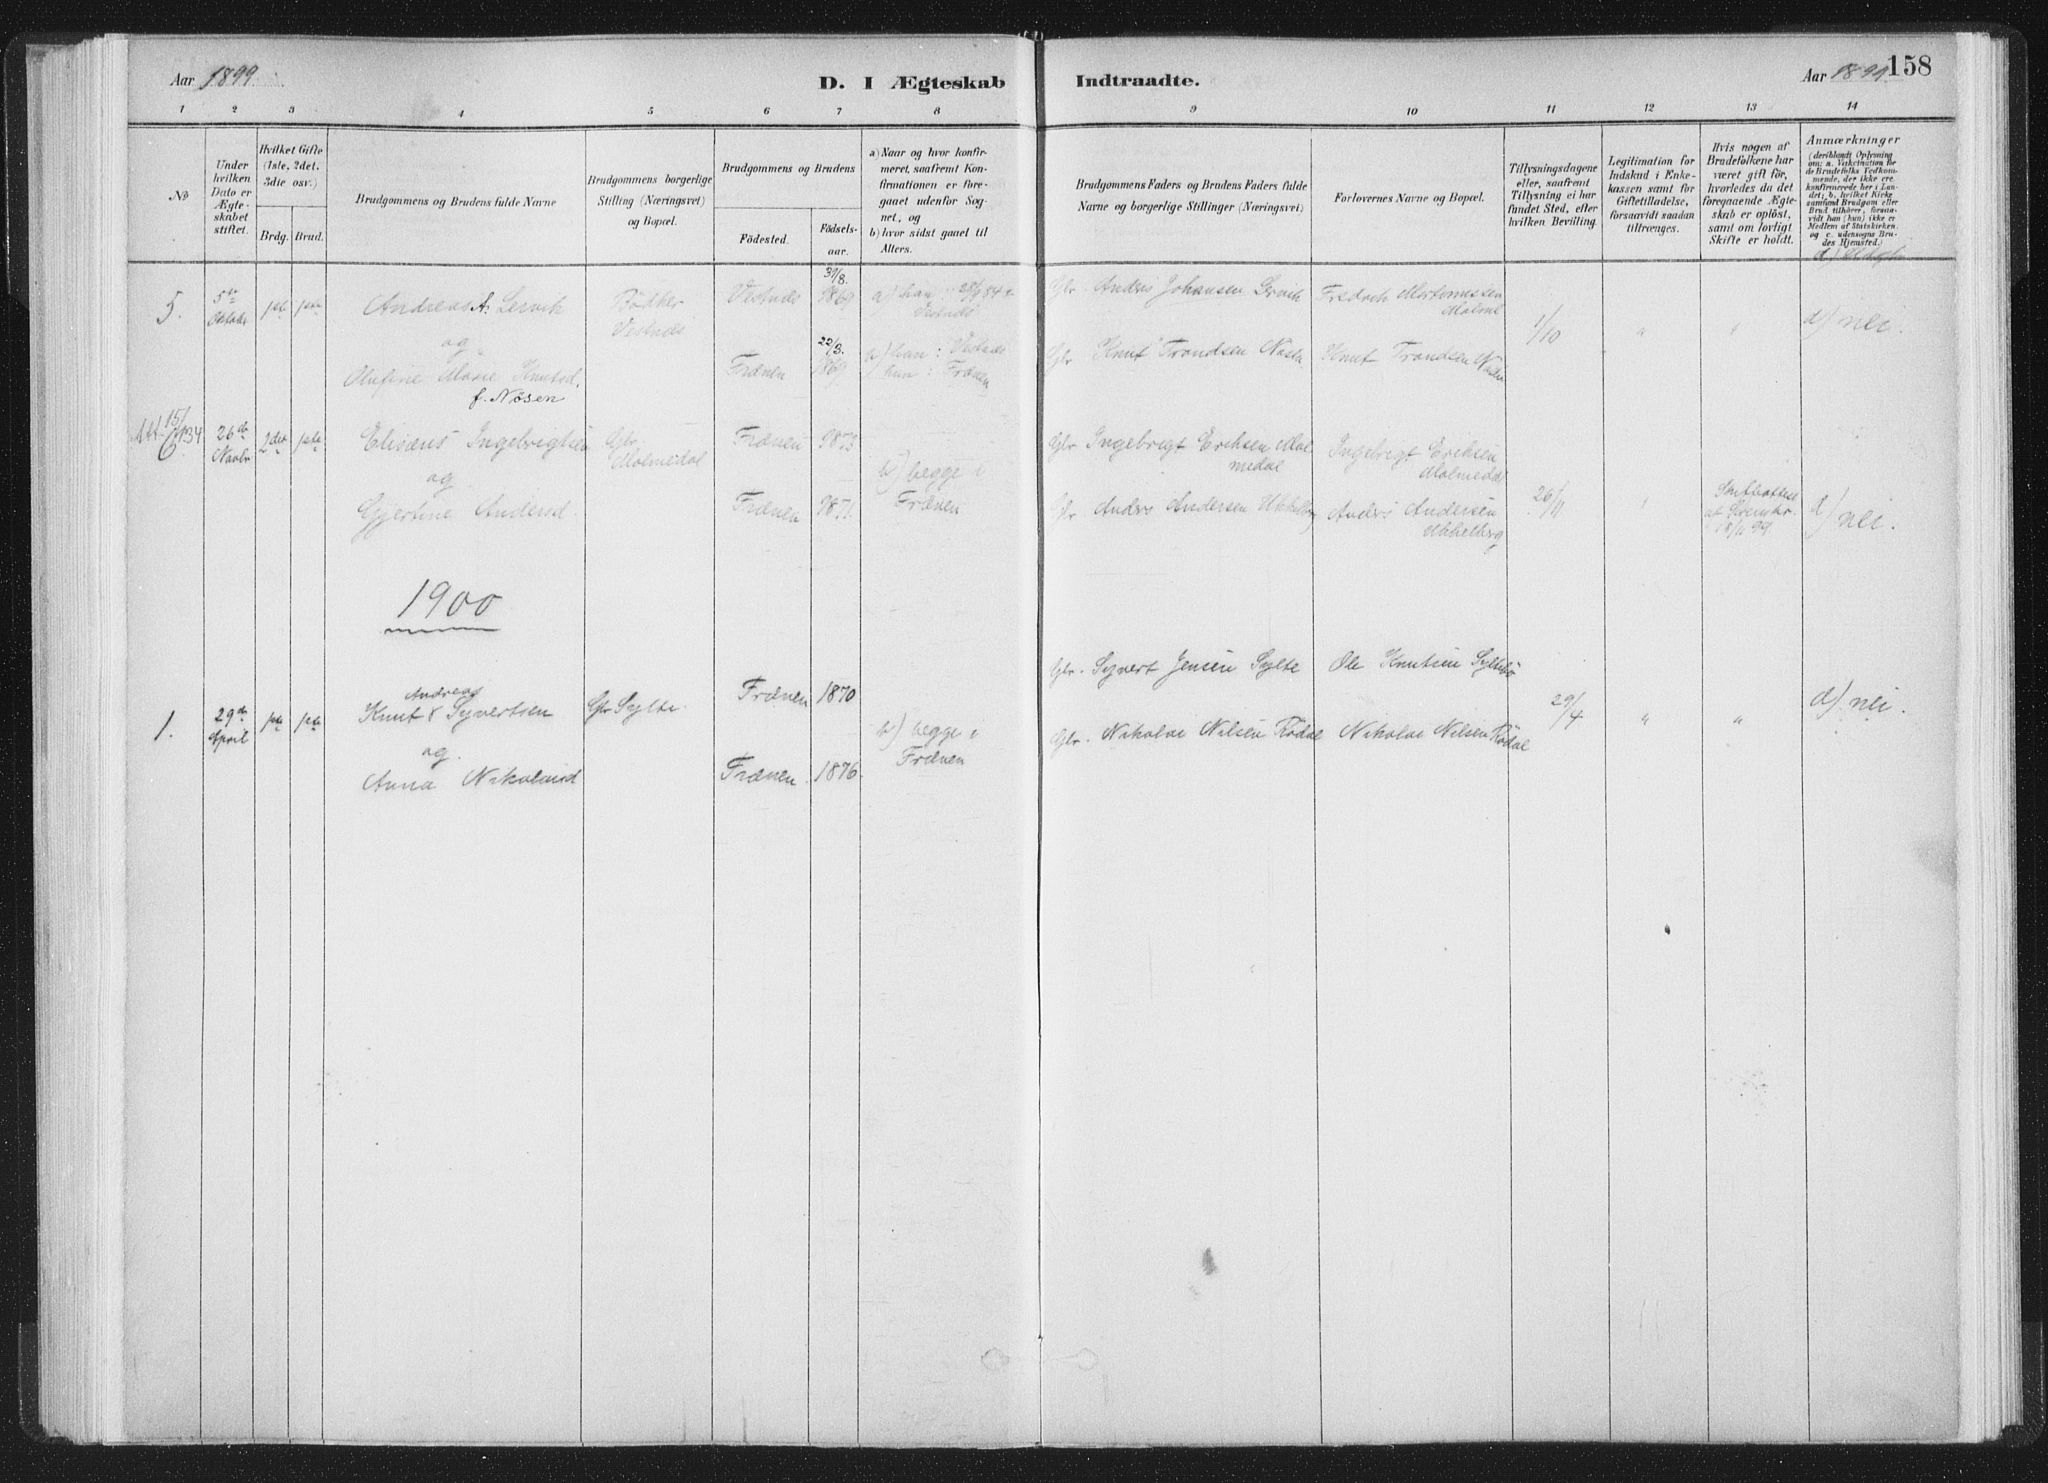 Aar 1899.
D. I Ægteskab
Indtraadte.
Aar 1899.
158
1 2 3 4 5 6 7 8
9 10 11 12 13 14
No
Under hvilken Dato er Ægteskabet stiftet.
Hvilket Gifte (1ste, 2det, 3die osv.)
Brdg. Brud.
Brudgommens og Brudens fulde Navne
Brudgommens borgerlige Stilling (Næringsvei) og Bopæl.
Brudgommens og Brudens
Födested.
Födselsaar.
a) Naar og hvor konfirmeret, saafremt Konfirmationen er foregaaet udenfor Sognet, og
b) hvor sidst gaaet til Alters.
Brudgommens Faders og Brudens Faders fulde Navne og borgerlige Stillinger (Næringsvei)
Forlovernes Navne og Bopæl.
Tillysningsdagene eller, saafremt Tillysning ei har fundet Sted, efter hvilken Bevilling.
Legitimation for Indskud i Enkekassen samt for Giftetilladelse, forsaavidt saadan tiltrænges.
Hvis nogen af Brudefolkene har været gift før, hvorledes da det foregaaende Ægteskab er oplöst, samt om lovligt Skifte er holdt.
Anmærkninger
(deriblandt Oplysning om: a. Vakcination for de Brudefolks Vedkommende, der ikke ere konfirmerede her i Landet; b. hvilket Kirkesamfund Brudgom eller Brud tilhörer, forsaavidt han (hun) ikke er Medlem af Statskirken, og c. udensogns Brudes Hjemsted.)
5.
5te Oktober
1ste 1ste
Andreas A. Lervik
og
Olufine Marie Knutsd.
f. Nøsen
Födker
Vestnæs
Vestnæs
31/8. 1869
Frænen
22/3. 1869
a) han: 28/9 84 i Vestnæs
b) han: Vestnæs
hun: Frænen
Gbr. Anders Johansen Lervik
Gbr Knut Trondsen
Fredrik Mortinussen
Knut Trondsen
1/10
" "
d) nei.
Att. 15/6 1934
6.
26de Novbr
2det 1ste
Elisæus Ingebrigtsen
og
Gjertine Andersd.
Gbr.
Malmedal
Frænen 1873
Frænen 1871.
b) begge i
Frænen
Gbr Ingebrigt Eriksen Malmedal
Gbr. Anders Andersen
Ingebrigt Eriksen
Malmedal
Anders Andersen
26/11
"
d) nei.
1900
1.
29de April
1ste 1ste
Andreas
Knut Syvertsen
og
Anna Nikolaisd
Gbr Sylte.
Frænen 1870
Frænen. 1876.
b) begge i
Frænen
Gbr. Syvert Jensen Sylte
Gbr. Nikolai Nilsen Rødal
Ole Knutsen Syltebø
Nikolai Nilsen Rødal
29/4
" "
d) nei.